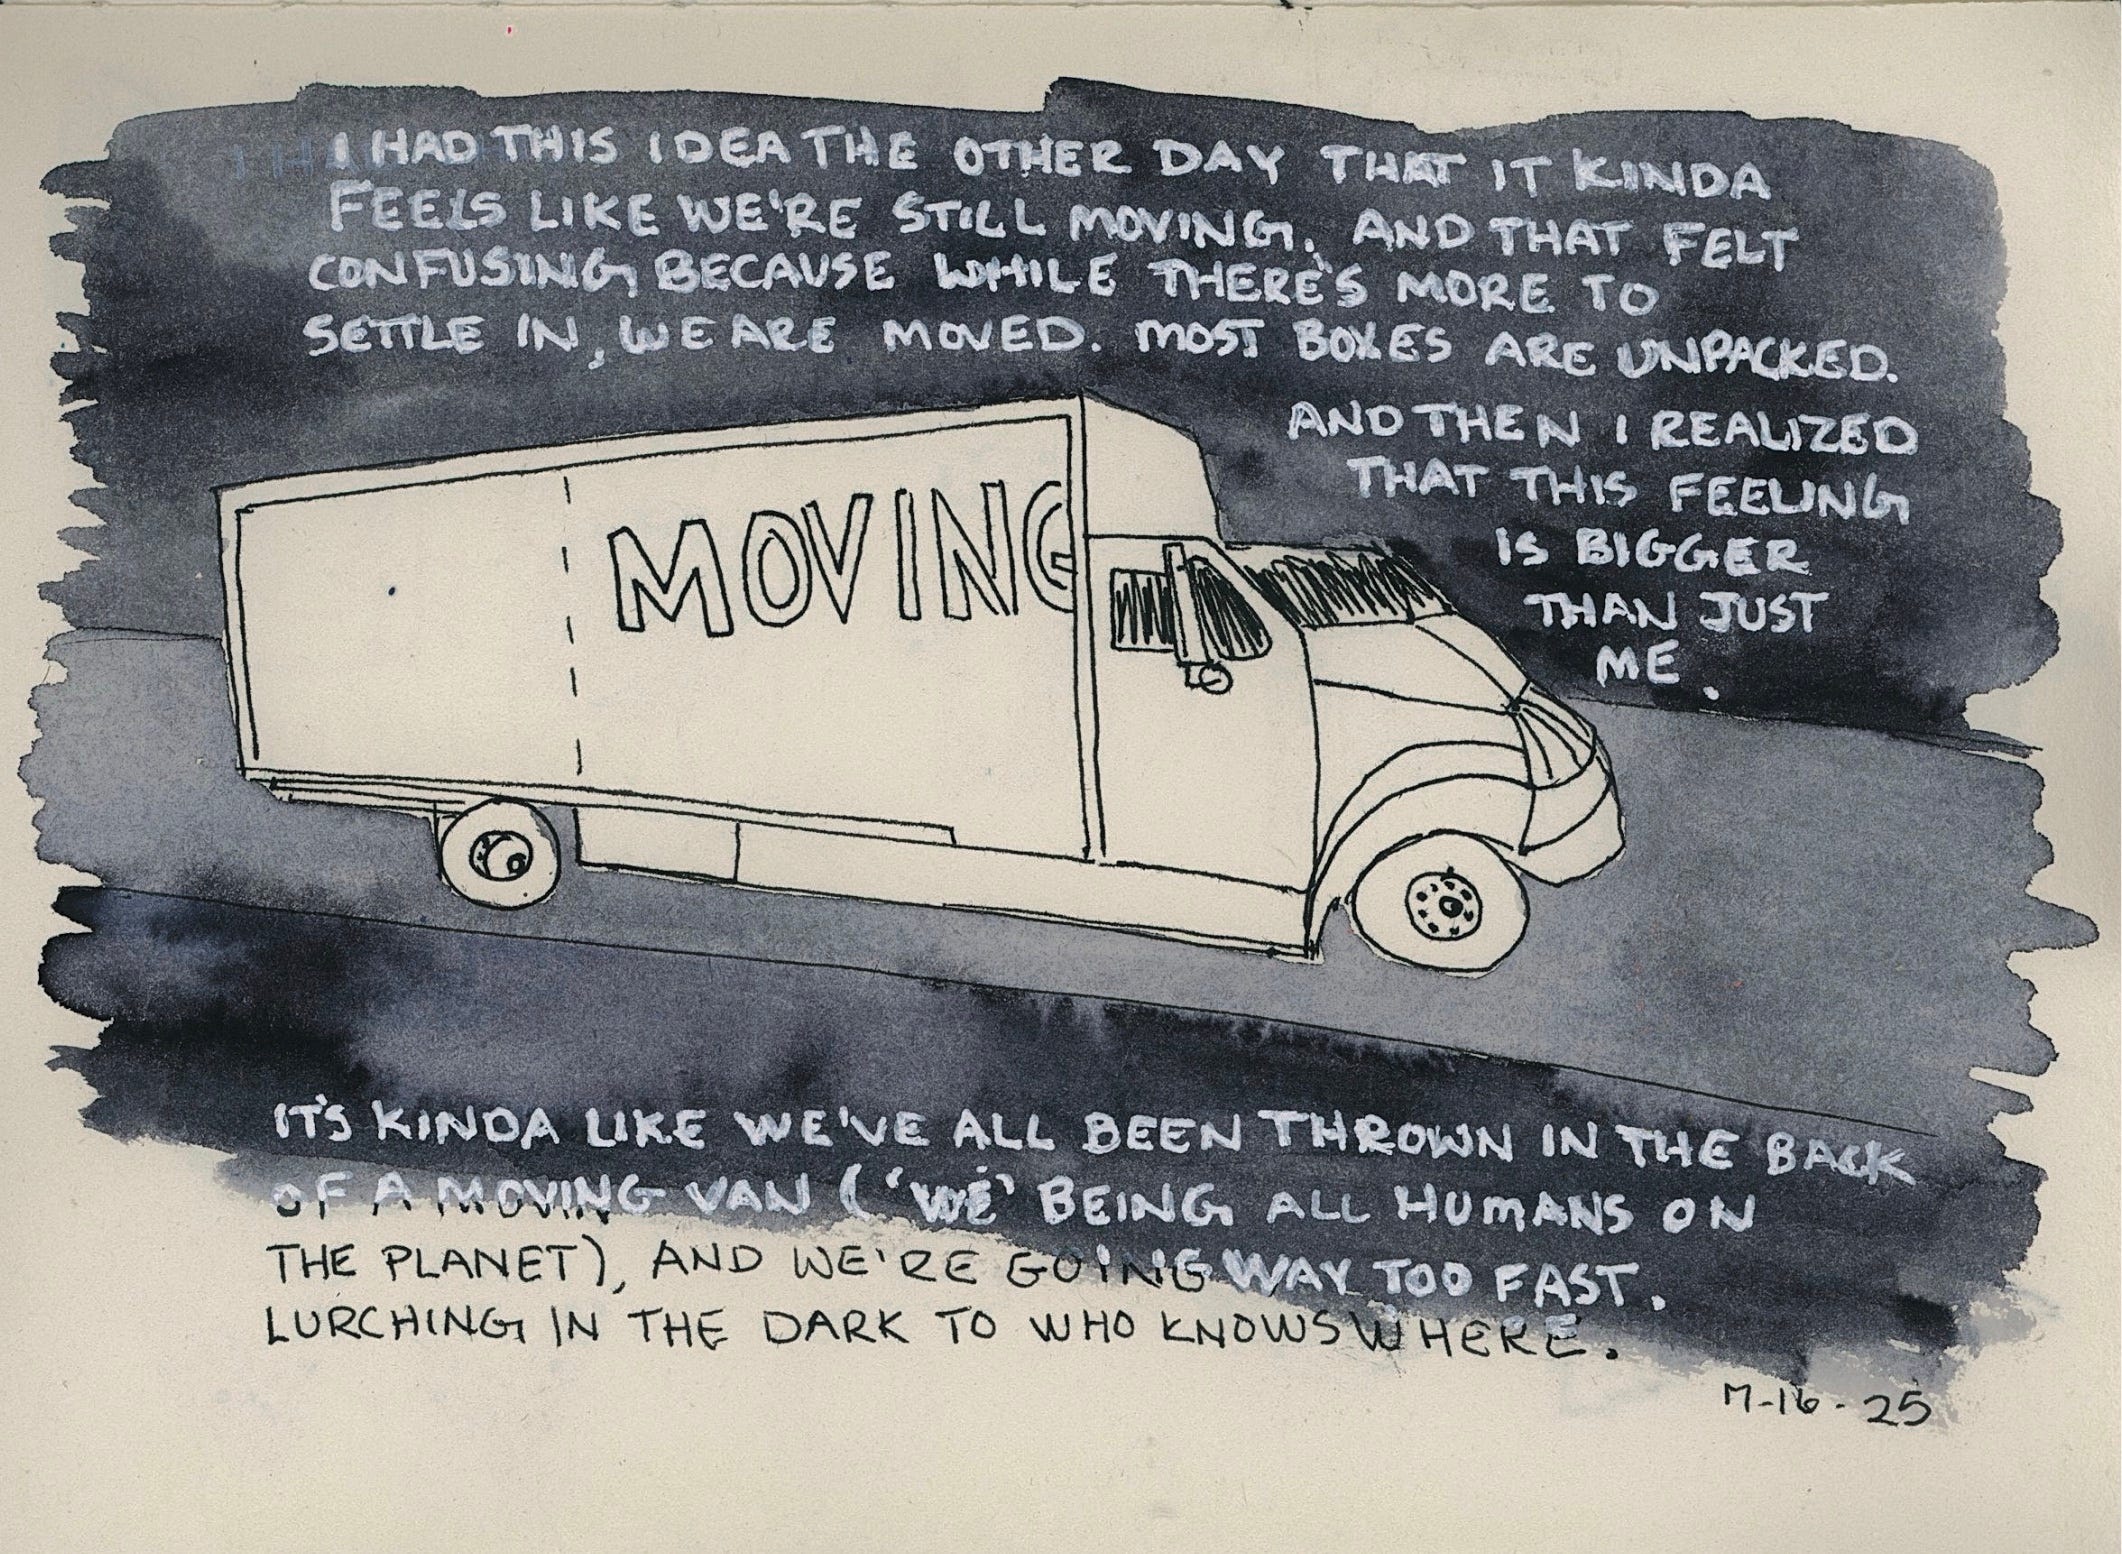 I HAD THIS IDEA THE OTHER DAY THAT IT KINDA
FEELS LIKE WE'RE STILL MOVING. AND THAT FELT
CONFUSING BECAUSE WHILE THERE'S MORE TO
SETTLE IN, WE ARE MOVED. MOST BOXES ARE UNPACKED.
AND THEN I REALIZED
THAT THIS FEELING
IS BIGGER
THAN JUST
ME.
MOVING
IT'S KINDA LIKE WE'VE ALL BEEN THROWN IN THE BACK
OF A MOVING VAN ('WE' BEING ALL HUMANS ON
THE PLANET), AND WE'RE GOING WAY TOO FAST.
LURCHING IN THE DARK TO WHO KNOWS WHERE.
7-16-25